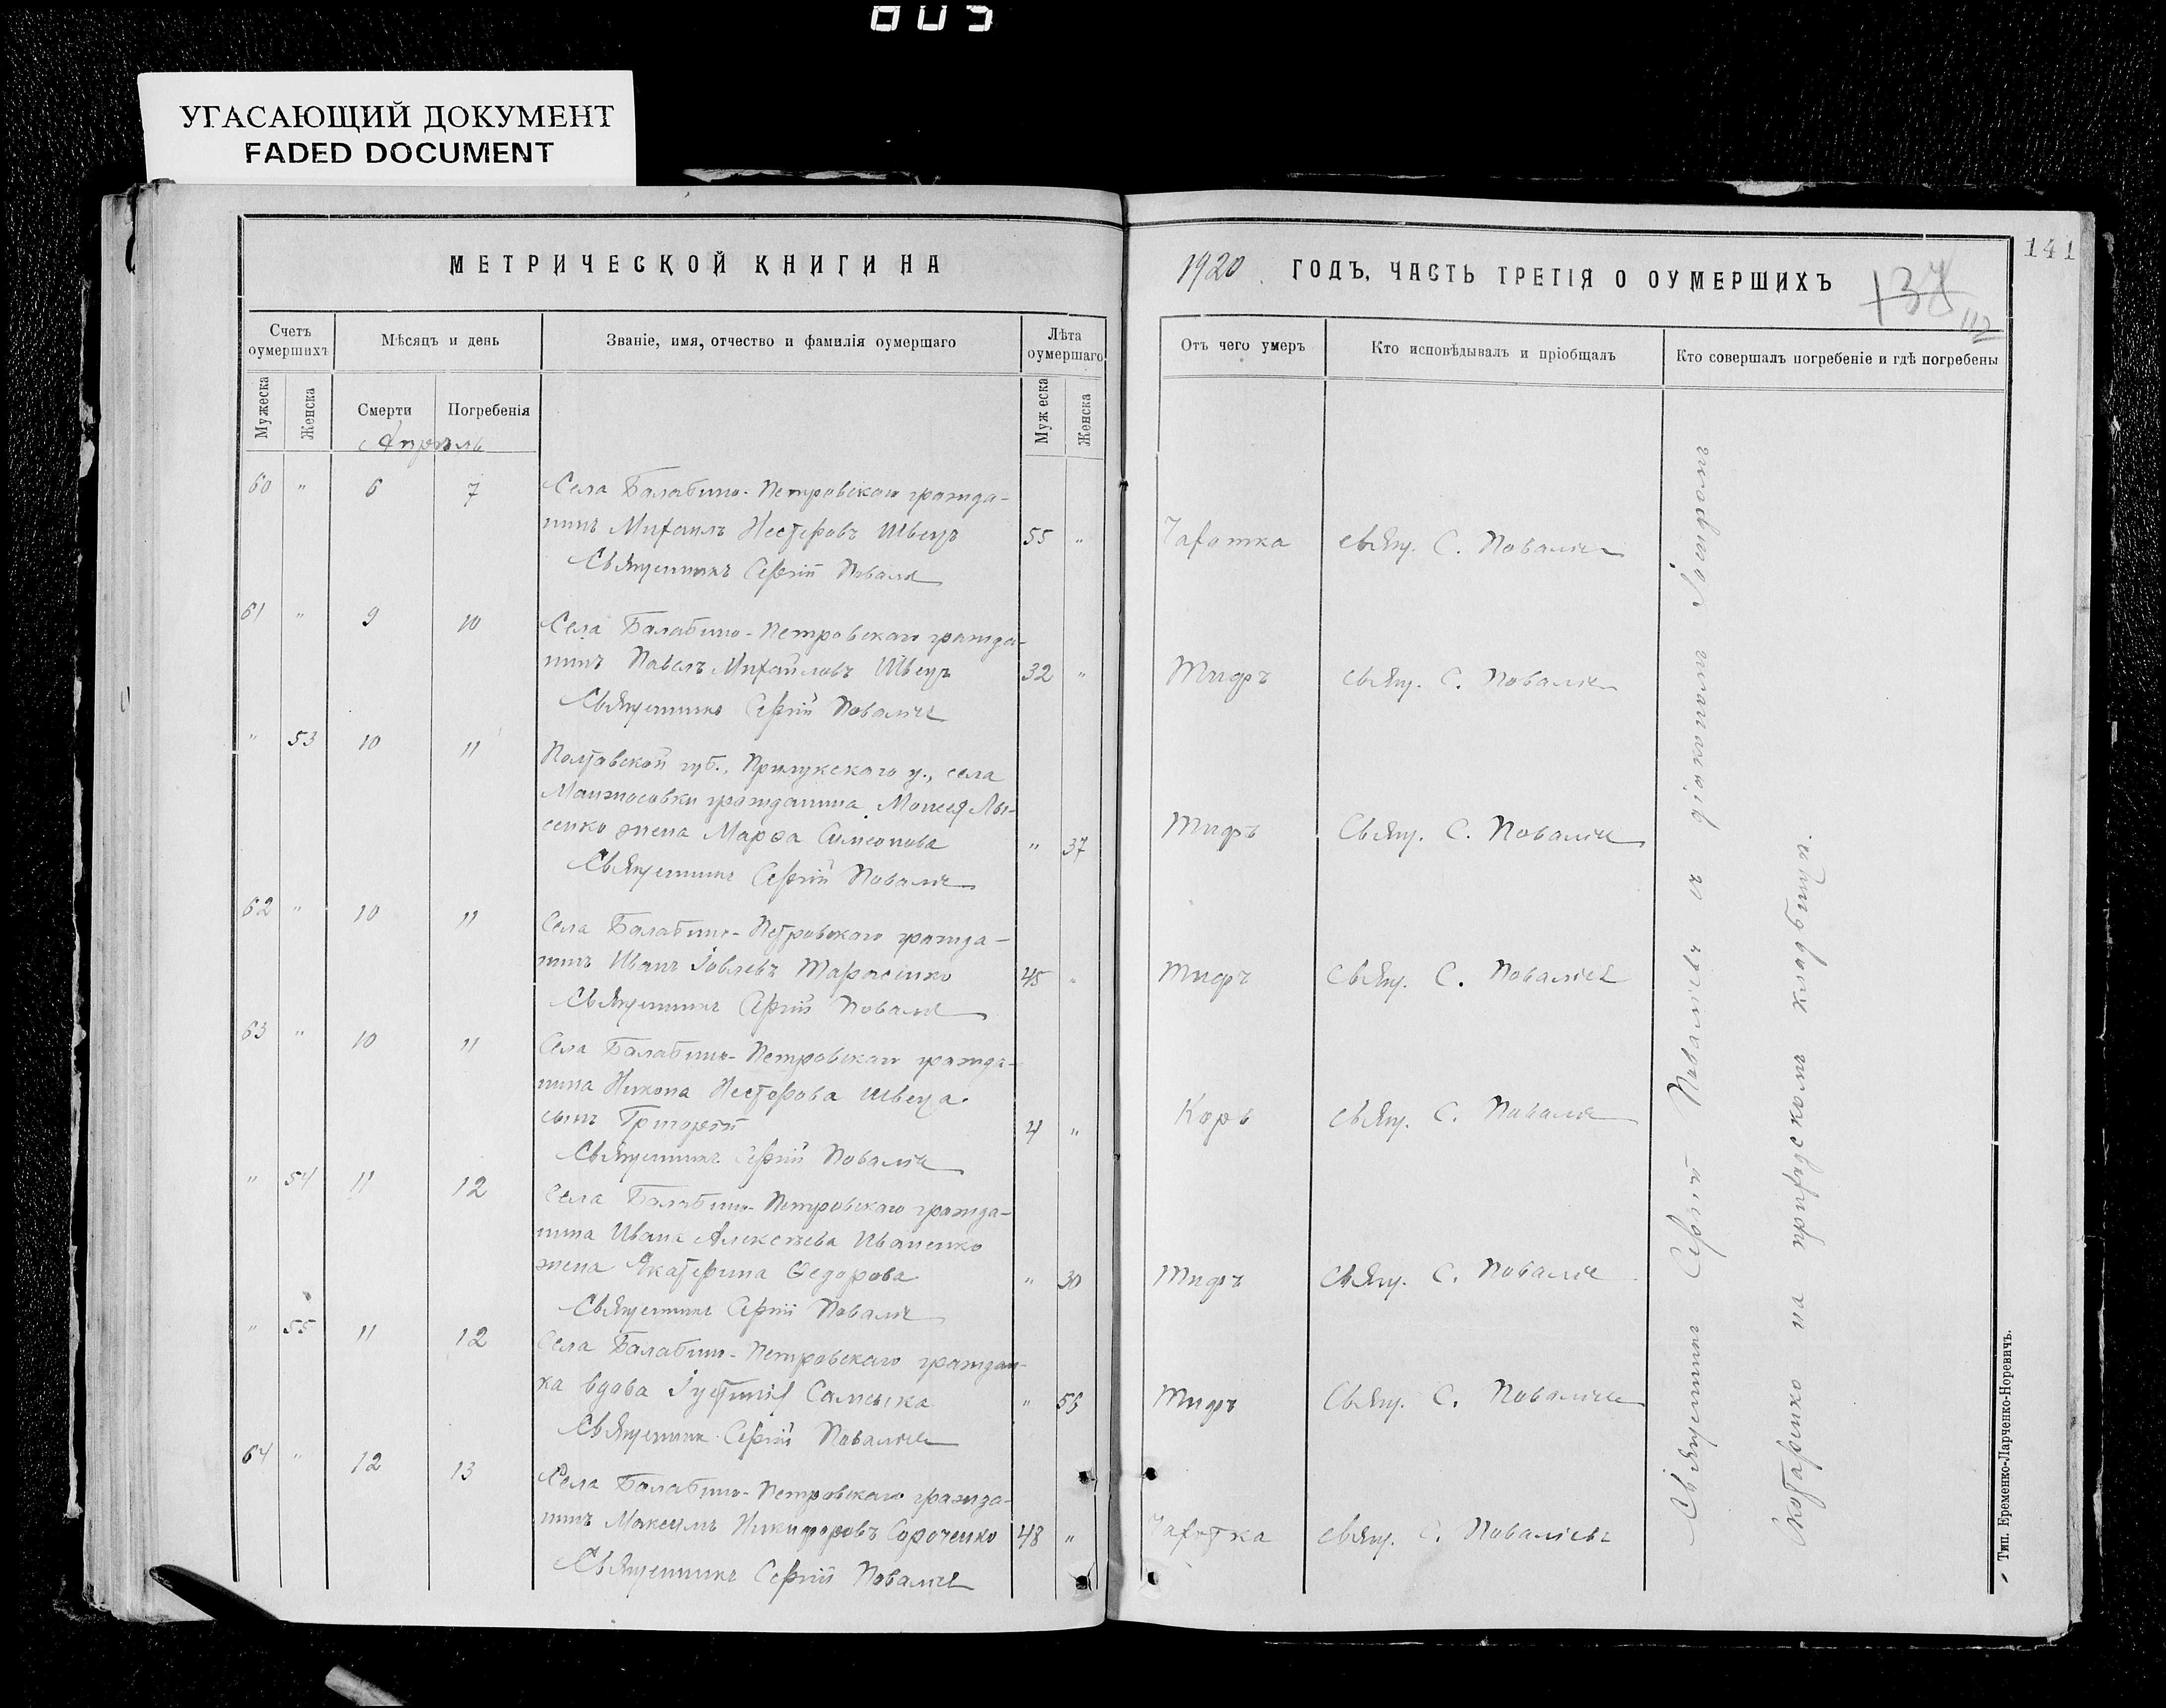 003
УГАСАЮЩИЙ ДОКУМЕНТ
FADED DOCUMENT
МЕТРИЧЕСКОЙ КНИГИ НА
1920 ГОДЪ, ЧАСТЬ ТРЕТІЯ О ОУМЕРШИХЪ
141
137
112
Счетъ оумершихъ
Мѣсяцъ и день
Званіе, имя, отчество и фамилія оумершаго
Лѣта оумершаго
Отъ чего умеръ
Кто исповѣдывалъ и пріобщалъ
Кто совершалъ погребеніе и гдѣ погребены
Мужеска Женска
Смерти Погребенія
Муж еска Женска
Апрѣль
60 " 6 7 Села Балабино-Петровскаго гражда-
нинъ Михаилъ Несторовъ Швецъ 55 " Чахотка свящ. С. Поваліевъ
Священникъ Сергій Поваліевъ
61 " 9 10 Села Балабино-Петровскаго гражда-
нинъ Павелъ Михайловъ Швецъ 32 " Тифъ свящ. С. Поваліевъ
Священникъ Сергій Поваліевъ
" 53 10 11 Полтавской губ., Прилукскаго у., села
Манжосовки гражданина Моисея Лы-
сенко жена Марѳа Симеонова " 37 Тифъ Свящ. С. Поваліевъ
Священникъ Сергій Поваліевъ
62 " 10 11 Села Балабино-Петровскаго гражда-
нинъ Иванъ Іовлевъ Тарасенко 45 " Тифъ Свящ. С. Поваліевъ
Священникъ Сергій Поваліевъ
63 " 10 11 Села Балабино-Петровскаго гражда-
нина Никона Несторова Швеца
сынъ Григорій 4 " Корь свящ. С. Поваліевъ
Священникъ Сергій Поваліевъ
" 54 11 12 Села Балабино-Петровскаго гражда-
нина Ивана Алексѣева Иваненко
жена Екатерина Ѳедорова " 30 Тифъ Свящ. С. Поваліевъ
Священникъ Сергій Поваліевъ
" 55 11 12 Села Балабино-Петровскаго граждан-
ка вдова Іустинія " 55 Тифъ Свящ. С. Поваліевъ
Священникъ Сергій Поваліевъ
64 " 12 13 Села Балабино-Петровскаго гражда-
нинъ Максимъ Никифоровъ Сороченко 48 " Чахотка свящ. С. Поваліевъ
Священникъ Сергій Поваліевъ
Священникъ Сергій Поваліевъ съ діакономъ
на приходскомъ кладбищѣ.
Тип. Еременко-Ларченко-Норевичъ.